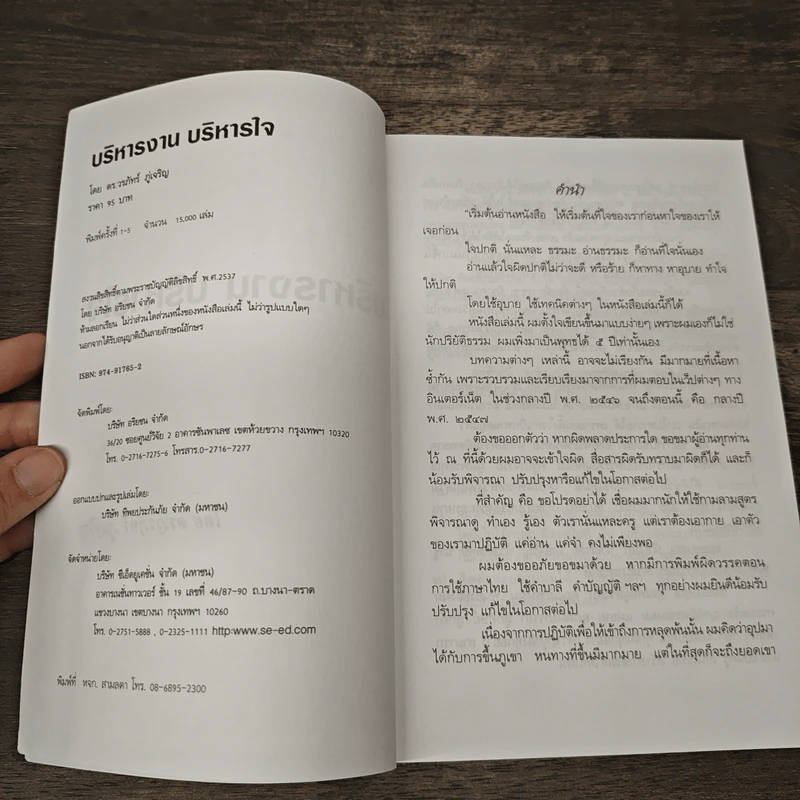 บริหารงาน บริหารใจ
โดย ดร.วรภัทร์ ภู่เจริญ
ราคา 95 บาท
พิมพ์ครั้งที่ 1-5 จำนวน 15,000 เล่ม
สงวนลิขสิทธิ์ตามพระราชบัญญัติลิขสิทธิ์ พ.ศ.2537
โดย บริษัท อริยชน จำกัด
ห้ามลอกเรียน ไม่ว่าส่วนใดส่วนหนึ่งของหนังสือเล่มนี้ ไม่ว่ารูปแบบใดๆ
นอกจากได้รับอนุญาติเป็นลายลักษณ์อักษร
ISBN: 974-91765-2
จัดพิมพ์โดย:
บริษัท อริยชน จำกัด
36/20 ซอยศูนย์วิจัย 2 อาคารชันพาเลซ เขตห้วยขวาง กรุงเทพฯ 10320
โทร. 0-2716-7275-6 โทรสาร.0-2716-7277
ออกแบบปกและรูปเล่มโดย:
บริษัท ทิพยประกันภัย จำกัด (มหาชน)
จัดจำหน่ายโดย:
บริษัท ซีเอ็ดยูเคชั่น จำกัด (มหาชน)
อาคารเนชั่นทาวเวอร์ ชั้น 19 เลขที่ 46/87-90 ถ.บางนา-ตราด
แขวงบางนา เขตบางนา กรุงเทพฯ 10260
โทร. 0-2751-5888 , 0-2325-1111 http:www.se-ed.com
พิมพ์ที่ หจก. สามลดา โทร. 08-6895-2300
คำนำ
"เริ่มต้นอ่านหนังสือ ให้เริ่มต้นที่ใจของเราก่อนหาใจของเราให้
เจอก่อน
ใจปกติ นั่นแหละ ธรรมะ อ่านธรรมะ ก็อ่านที่ใจนั่นเอง
อ่านแล้วใจผิดปกติไม่ว่าจะดี หรือร้าย ก็หาทาง หาอุบาย ทำใจ
ให้ปกติ
โดยใช้อุบาย ใช้เทคนิคต่างๆ ในหนังสือเล่มนี้ก็ได้
หนังสือเล่มนี้ ผมตั้งใจเขียนขึ้นมาแบบง่ายๆ เพราะผมเองก็ไม่ใช่
นักปริยัติธรรม ผมเพิ่งมาเป็นพุทธได้ ๕ ปีเท่านั้นเอง
บทความต่างๆ เหล่านี้ อาจจะไม่เรียงกัน มีมากมายที่เนื้อหา
ซ้ำกัน เพราะรวบรวมและเรียบเรียงมาจากการที่ผมตอบในเว็ปต่างๆ ทาง
อินเตอร์เน็ต ในช่วงกลางปี พ.ศ. ๒๕๔๖ จนถึงตอนนี้ คือ กลางปี
พ.ศ. ๒๕๔๗
ต้องขอออกตัวว่า หากผิดพลาดประการใด ขอขมาผู้อ่านทุกท่าน
ไว้ ณ ที่นี้ด้วยผมอาจจะเข้าใจผิด สื่อสารผิดรับทราบมาผิดก็ได้ และก็
น้อมรับพิจารณา ปรับปรุงหารือแก้ไขในโอกาสต่อไป
ที่สำคัญ คือ ขอโปรดอย่าได้ เชื่อผมมากนักให้ใช้กามลามสูตร
พิจารณาดู ทำเอง รู้เอง ตัวเรานั่นแหละครู แต่เราต้องเอากาย เอาตัว
ของเรามาปฏิบัติ แค่อ่าน แค่จำ คงไม่เพียงพอ
ผมต้องขออภัยขอขมาด้วย หากมีการพิมพ์ผิดวรรคตอน
การใช้ภาษาไทย ใช้คำบาลี คำบัญญัติ ฯลฯ ทุกอย่างผมยินดีน้อมรับ
ปรับปรุง แก้ไขในโอกาสต่อไป
เนื่องจากการปฏิบัติเพื่อให้เข้าถึงการหลุดพ้นนั้น ผมคิดว่าอุปมา
ได้กับการขึ้นภูเขา หนทางที่ขึ้นมีมากมาย แต่ในที่สุดก็จะถึงยอดเขา